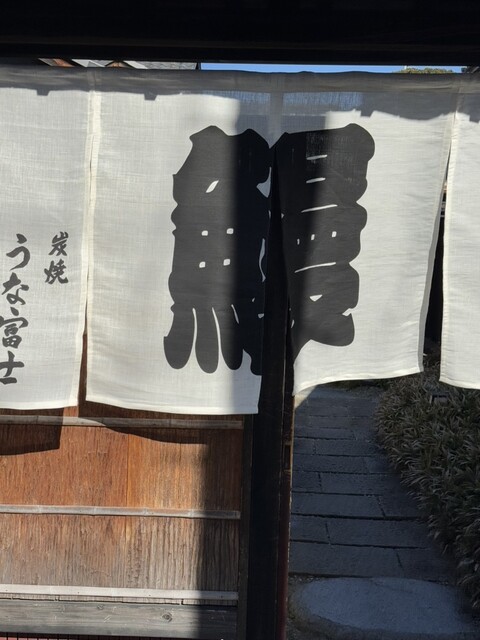 鰻
炭焼
うな富士